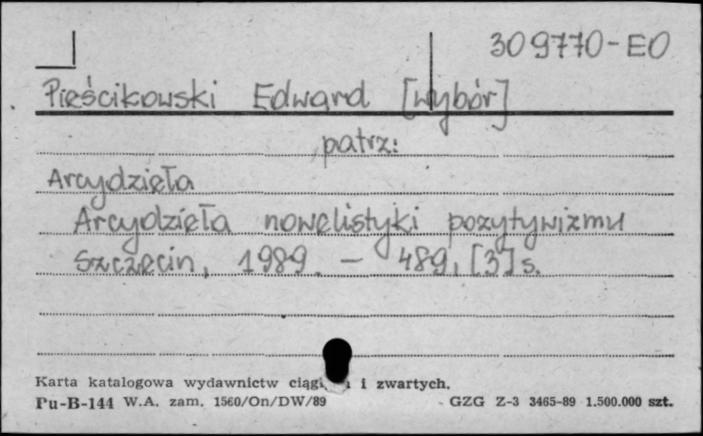 309770-EO
Pieścikowski Edward [wybór]
patrz:
Arcydzieła
Arcydzieła nowelistyki pozytywizmu
Szczecin, 1989. - 489, [3] s.
Karta katalogowa wydawnictw i zwartych.
Pu-B-144 W.A. zam. 1560/On/DW/89 GZG Z-3 3465-89 1.500.000 szt.